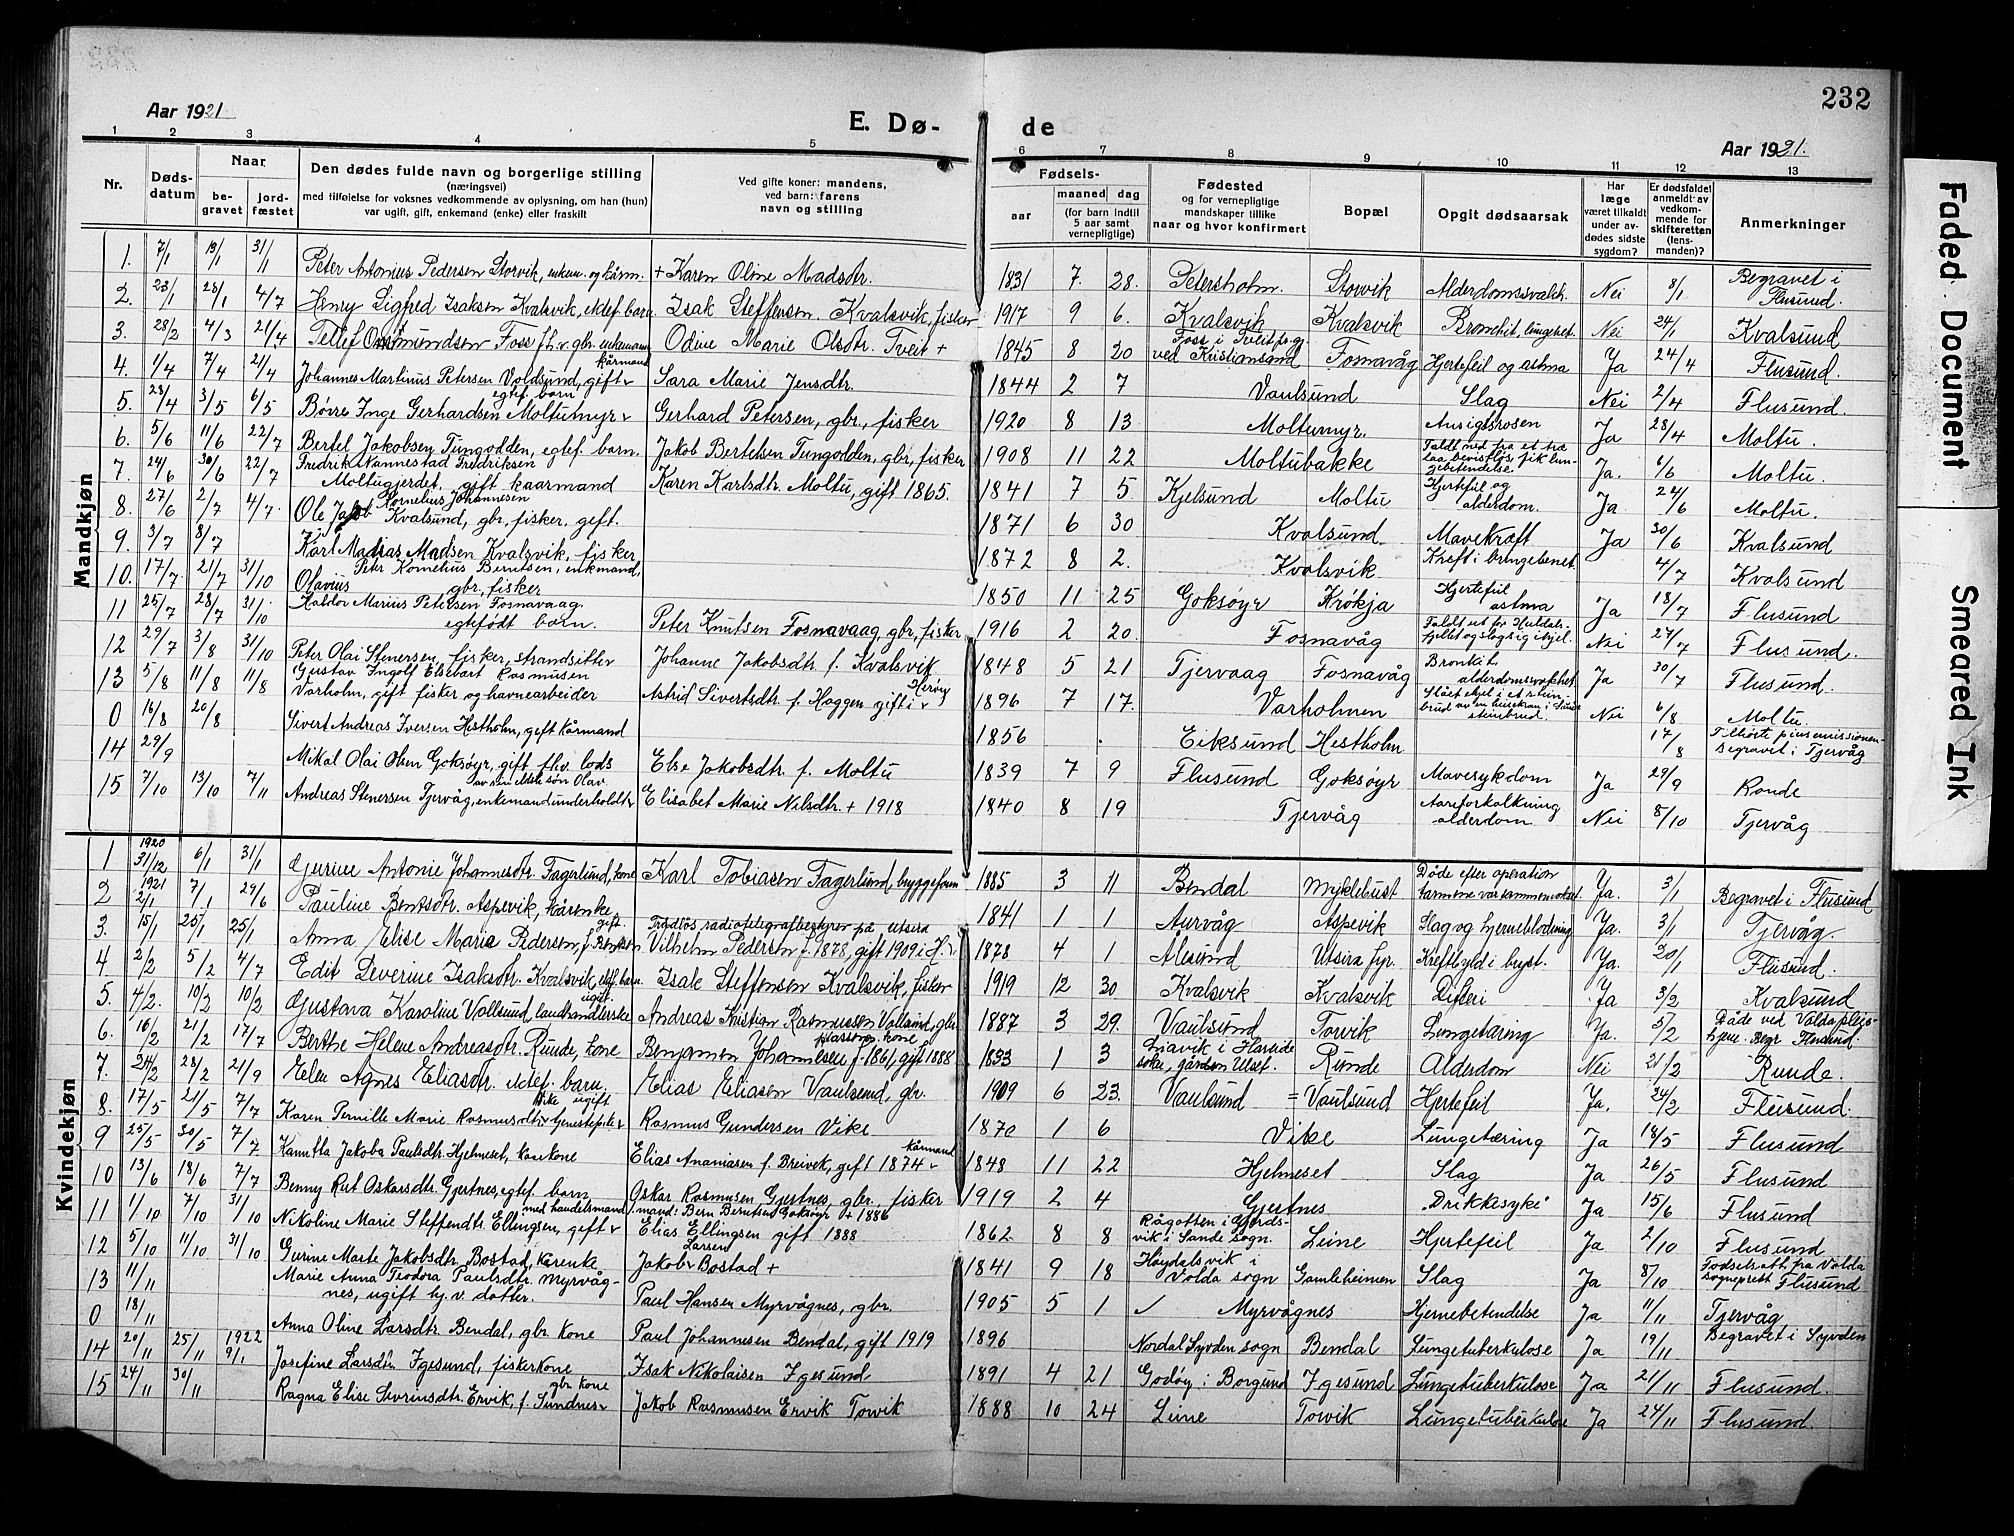 232
Aar 1921
E. Dø-
de
Aar 1921.
1 2 3 4 5 6 7 8 9 10 11 12 13
Nr.
Dødsdatum
Naar
begravet
jordfæstet
Den dødes fulde navn og borgerlige stilling
(næringsvei)
med tilføielse for voksnes vedkommende av oplysning, om han (hun)
var ugift, gift, enkemand (enke) eller fraskilt
Ved gifte koner: mandens,
ved barn: farens
navn og stilling
Fødsels-
aar
maaned dag
(for barn indtil
5 aar samt
vernepligtige)
Fødested
og for vernepligtige
mandskaper tillike
naar og hvor konfirmert
Bopæl
Opgit dødsaarsak
Har
læge
været tilkaldt
under av-
dødes sidste
sygdom?
Er dødsfaldet
anmeldt av
vedkom-
mende for
skifteretten
(lens-
manden)?
Anmerkninger
Mandkjøn
1. 7/1 13/1 31/1 Peter Antonius Pedersen Storvik, enkem. og kårm. + Karen Oline Madsdtr. 1831 7. 28. Petersholm. Storvik Alderdomssvakh. Nei 8/1 Begravet i Flusund.
2. 23/1 28/1 4/7 Henry Sigfred Isaksen Kvalsvik, ektef. barn. Isak Steffensen Kvalsvik, fisker 1917 9 6. Kvalsvik Kvalsvik Bronchit, lungebet. Nei 24/1 Kvalsund
3. 28/2 4/3 21/4 Tellef Osmundsen Foss fh.v. gbr. enkemann Odine Marie Olsdtr. Tveit + 1845 8 20 Foss i Tveit pgj. ved Kristiansand Fosnavåg Hjertefeil og astma Ja 24/4 Flusund.
4. 1/4 7/4 21/4 Johannes Martinus Petersen Voldsund, gift kårmand Sara Marie Jensdtr. 1844 2 7 Vaulsund Slag Nei 2/4 Flusund.
5. 28/4 3/5 6/5 Børre Inge Gerhardsen Moltumyr egtef. barn Gerhard Petersen, gbr, fisker 1920 8 13. Moltumyr. Ansigtsrosen Ja 28/4 Moltu.
6. 5/6 11/6 22/7 Bertel Jakobsen Tungodden, egtef. barn. Jakob Bertelsen Tungodden, gbr, fisker 1908 11 22 Moltubakke Faldt ned fra et træ laa bevistløs, fik lungebetendelse. Ja. 6/6 Moltu.
7. 24/6 30/6 22/7 Fredrik Nannestad Fredriksen Moltugjerdet, gift kaarmand Karen Karlsdtr. Moltu, gift 1865. 1841 7 5 Kjelsund Moltu Hjertefeil og alderdom. Ja 24/6 Moltu.
8. 27/6 2/7 4/7. Ole Jakob Kornelius Johannesen Kvalsund, gbr, fisker, gift. 1871 6 30 Kvalsund Mavekræft Ja 30/6 Kvalsund
9. 3/7 8/7 Karl Mathias Madsen Kvalsvik, fisker 1872 8 2. Kvalsvik Kreft i bringebenet 4/7 Kvalsund
10. 17/7 21/7 31/10 Olavius Peter Kornelius Berntsen, enkmand, gbr, fisker 1850 11 25 Goksøyr Krøkja Hjertefeil astma Ja 18/7 Flusund
11 25/7 28/7 31/10 Haldor Marius Petersen Fosnavaag egtefødt barn. Peter Knutsen Fosnavaag, gbr, fisker 1916 2 20. Fosnavåg Nei 27/7 Flusund.
12 29/7 3/8 31/10 Peter Olai Stenersen, fisker, strandsitter Johanne Jakobsdtr. f. Kvalsvik 1848 5 21 Tjervaag Fosnavåg Bronkit, alderdomssvakhet Ja 30/7 Flusund.
13 5/8 11/8 11/8 Gustav Ingolf Elsebart Rasmusen Varholm, gift fisker og havnearbeider Astrid Sivertsdtr. f. Haggen gift i Herøy 1896 7 17. Varholmen Nei 6/8 Moltu.
0 16/8 20/8 Sivert Andreas Iversen Hestholm, gift kårmand 1856 Eiksund Hestholm 17/8 Tilhørte pinsemissionen. Begravet i Tjervåg
14 29/9 Mikal Olai Olsen Goksøyr, gift fhv. lods Else Jakobsdtr. f. Moltu 1839 7 9 Flusund Goksøyr Mavesykdom Ja 29/9 Runde
15 7/10 13/10 7/11 Andreas Stenersen Tjervåg, enkemand underholdt av sin eldste søn Olav Elisabet Marie Nilsdtr. + 1918 1840 8 19 Tjervåg Aareforkalkning alderdom. Nei 8/10 Tjervåg
Kvindekjøn
1 1920 31/12 6/1 31/1 Gurine Antonie Johannesdtr. Fagerlund, kone Karl Tobiasen Fagerlund, byggeform 1885 3 11 Bendal Myklebust Døde efter operation tarmene var sammenvokset Ja. 3/1 Begravet i Flusund
2 1921 2/1 7/1 29/6 Pauline Bentsdtr. Aspevik, kårenke. 1841 1 1 Aurvåg Aspevik Slag og hjerneblødning Ja. 3/1 Tjervåg.
3. 15/1 25/1 25/1 Anna Elise Marie Pedersen, f. Bentsen gift. Trådløs radiotelegrafbestyrer på Utsira Vilhelm Pedersen f. 1878, gift 1909 i H. 1878 4 1 Ålesund Utsira fyr. Kreftbyld i bryst. Ja. 20/1 Flusund.
4 2/2 5/2 4/7 Edit Deverine Isaksdtr. Kvalsvik, ektf. barn. Isak Steffensen Kvalsvik, fisker 1919 12 30 Kvalsvik Kvalsvik Difteri Ja 3/2 Kvalsund
5. 4/2. 10/2 10/2 Gustava Karoline Vollsund, landhandlerske ugift. Andreas Kristian Rasmussen Vollsund, gbr. 1887 3 29. Vaulsund Torvik Lungetæring Ja. 5/2 Døde ved Volda pleiehjem. Begr. Flusund.
6. 16/2 21/2 17/7 Berthe Helene Andreasdtr. Runde, kone Benjamen Johannesen f. 1861, gift 1888 1833 1 3 Liavik i Hareide sokn, gården Ulset. Runde Alderdom Nei 21/2 Runde.
7. 24/2 28/2 21/9 Elen Agnes Eliasdtr. ektef. barn. Elias Eliasen Vaulsund, gbr. 1909 6 23. Vaulsund = Vaulsund Hjertefeil Ja. 24/2 Flusund.
8. 17/5 21/5 7/7 Karen Pernille Marie Rasmusdtr. Vike ugift tjenestepike Rasmus Gundersen Vike 1870 1 6 Vike Lungetæring Ja 18/5 Flusund
9 25/5 30/5 7/7 Kanutta Jakoba Paulsdtr. Hjelmeset, kårkone Elias Ananiasen f. Breivik, gift 1874 kårmand 1848 11 22 Hjelmeset Slag Ja 26/5 Flusund
10 13/6 18/6 7/7 Benny Rut Oskarsdtr. Gjertnes, egtef. barn Oskar Rasmusen Gjertnes, gbr. fisker 1919 2 4 Gjertnes "Drikkesyke" Ja 15/6 Flusund
11 1/10 7/10 31/10 Nikoline Marie Steffendtr. Ellingsen, gift med handelsmand 1 mand: Bern Berntsen Goksøyr + 1886 Elias Ellingsen gift 1888 1862 8 8 Rågotten i Gjerdsvik i Sande sogn. Leine Hjertefeil Ja 2/10 Flusund
12 5/10 11/10 31/10 Gurine Marte Jakobsdtr. Bostad, kårenke Jakob Larsen Bostad + 1841 9 18 Høydalsvik i Volda sogn Gamleheimen Slag Ja 8/10 Fødselsatt. fra Volda sogneprest Flusund
13 11/11 Marie Anna Teodora Paulsdtr. Myrvågnes, ugift hj.v. datter. Paul Hansen Myrvågnes, gbr. 1905 5 1 ✓ Myrvågnes Hjernebetendelse Ja 11/11 Tjervåg
0 18/11 Anna Oline Larsdtr. Bendal, gbr kone Paul Johannesen Bendal, gift 1919 1896 Nordal Syvden sogn Bendal Lungetuberkulose Ja 19/11 Begravet i Syvden
14 20/11 25/11 1922 9/1 Josefine Larsdtr. Igesund, fiskerkone Isak Nikolaisen Igesund 1891 4 21 Godøy i Borgund Igesund Lungetuberkulose Ja 21/11 Flusund.
15 24/11 30/11 Ragna Elise Sevrinsdtr. Ervik, f. Sundnes gbr kone Jakob Rasmusen Ervik Torvik 1888 10 24 Leine Torvik Lungetuberkulose Ja 24/11 Flusund.
Faded Document
Smeared Ink